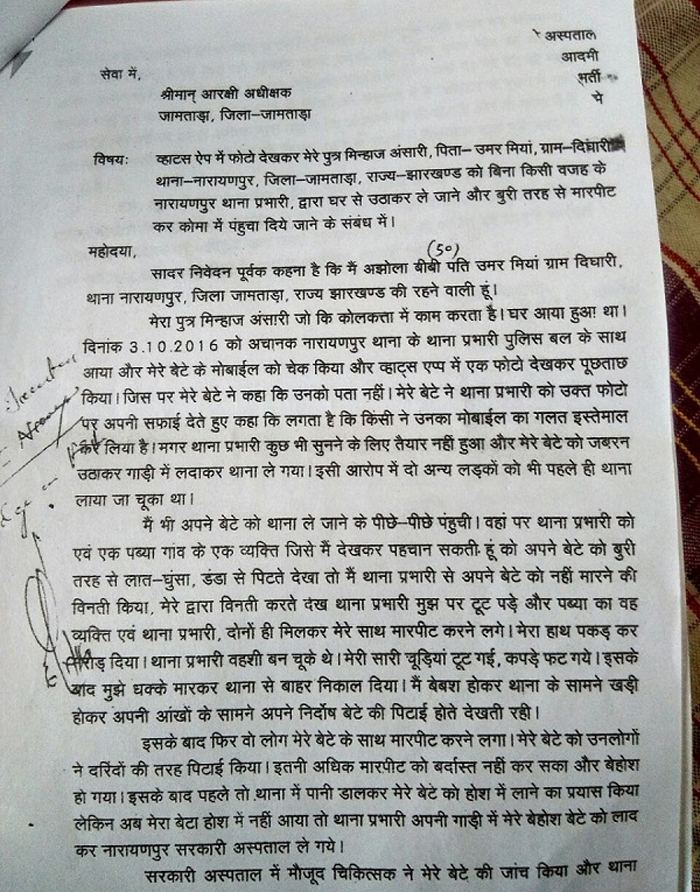 अस्पताल
आदमी
भर्ती
पे
सेवा में,
श्रीमान् आरक्षी अधीक्षक
जामताड़ा, जिला–जामताड़ा
विषयः व्हाटस ऐप में फोटो देखकर मेरे पुत्र मिन्हाज अंसारी, पिता– उमर मियां, ग्राम–दिघारी
थाना–नारायणपुर, जिला–जामताड़ा, राज्य–झारखण्ड को बिना किसी वजह के
नारायणपुर थाना प्रभारी, द्वारा घर से उठाकर ले जाने और बुरी तरह से मारपीट
कर कोमा में पंहुचा दिये जाने के संबंध में।
महोदया,
(50)
सादर निवेदन पूर्वक कहना है कि मैं अझोला बीबी पति उमर मियां ग्राम दिघारी,
थाना नारायणपुर, जिला जामताड़ा, राज्य झारखण्ड की रहने वाली हूं।
मेरा पुत्र मिन्हाज अंसारी जो कि कोलकत्ता में काम करता है। घर आया हुआ था।
दिनांक 3.10.2016 को अचानक नारायणपुर थाना के थाना प्रभारी पुलिस बल के साथ
आया और मेरे बेटे के मोबाईल को चेक किया और व्हाट्स एप्प में एक फोटो देखकर पूछताछ
किया। जिस पर मेरे बेटे ने कहा कि उनको पता नहीं। मेरे बेटे ने थाना प्रभारी को उक्त फोटो
पर अपनी सफाई देते हुए कहा कि लगता है कि किसी ने उनका मोबाईल का गलत इस्तेमाल
कर लिया है। मगर थाना प्रभारी कुछ भी सुनने के लिए तैयार नहीं हुआ और मेरे बेटे को जबरन
उठाकर गाड़ी में लदाकर थाना ले गया। इसी आरोप में दो अन्य लड़कों को भी पहले ही थाना
लाया जा चूका था।
मैं भी अपने बेटे को थाना ले जाने के पीछे–पीछे पंहुची। वहां पर थाना प्रभारी को
एवं एक पब्या गांव के एक व्यक्ति जिसे मैं देखकर पहचान सकती हूं को अपने बेटे को बुरी
तरह से लात–घुंसा, डंडा से पिटते देखा तो मैं थाना प्रभारी से अपने बेटे को नहीं मारने की
विनती किया, मेरे द्वारा विनती करते देख थाना प्रभारी मुझ पर टूट पड़े और पब्या का वह
व्यक्ति एवं थाना प्रभारी, दोनों ही मिलकर मेरे साथ मारपीट करने लगे। मेरा हाथ पकड़ कर
मरोड़ दिया। थाना प्रभारी वहशी बन चूके थे। मेरी सारी चूड़ियां टूट गई, कपड़े फट गये। इसके
बाद मुझे धक्के मारकर थाना से बाहर निकाल दिया। मैं बेबश होकर थाना के सामने खड़ी
होकर अपनी आंखों के सामने अपने निर्दोष बेटे की पिटाई होते देखती रही।
इसके बाद फिर वो लोग मेरे बेटे के साथ मारपीट करने लगा। मेरे बेटे को उनलोगों
ने दरिंदों की तरह पिटाई किया। इतनी अधिक मारपीट को बर्दास्त नहीं कर सका और बेहोश
हो गया। इसके बाद पहले तो थाना में पानी डालकर मेरे बेटे को होश में लाने का प्रयास किया
लेकिन अब मेरा बेटा होश में नहीं आया तो थाना प्रभारी अपनी गाड़ी में मेरे बेहोश बेटे को लाद
कर नारायणपुर सरकारी अस्पताल ले गये।
सरकारी अस्पताल में मौजूद चिकित्सक ने मेरे बेटे की जांच किया और थाना